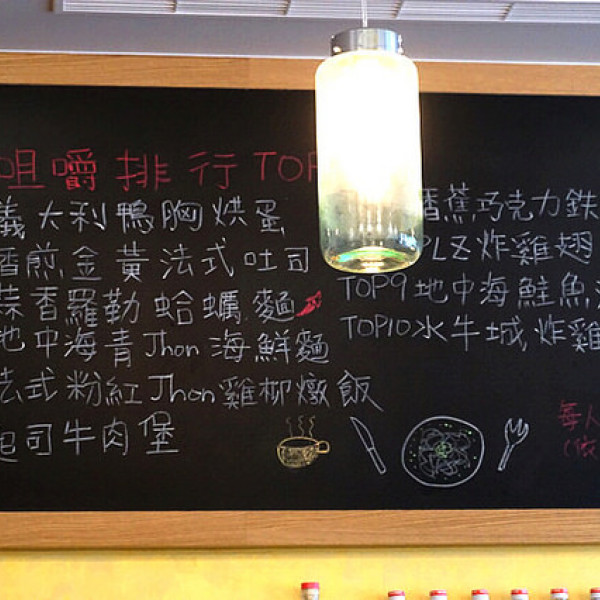 咀嚼排行TOP
義大利鴨胸烘蛋
香煎金黃法式吐司
蒜香羅勒蛤蠣麵
地中海青Jhon海鮮麵
法式粉紅Jhon雞柳燉飯
起司牛肉堡
香蕉巧克力鉄
PLZ炸雞翅
TOP9地中海鮭魚
TOP10水牛城炸雞
每人